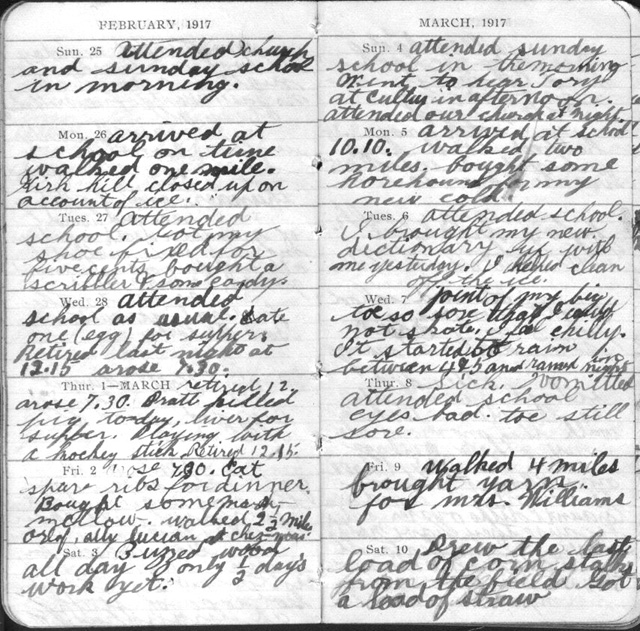 FEBRUARY, 1917
Sun. 25 attended church
and sunday school
in morning.
Mon. 26 arrived at
school on time
walked one mile.
Kirk hill closed up on
account of ice.
Tues. 27 attended
school. Got my
shoe fixed for
five cents bought a
scribbler & some candy.
Wed. 28 attended
school as usual. ate
one (egg) for supper.
Retired last night at
12.15 arose 7.30.
Thur. 1—MARCH retired 12.
arose 7.30. Pratt killed
pig to-day, liver for
supper. Playing with
a hockey stick. Retired 12.15.
Fri. 2 arose 7.30. Eat
spare ribs for dinner.
Bought some marsh
mellow. walked 2 1/3 miles
Sat. 3 Buzzed wood
all day only 1/3 day's
work yet.
MARCH, 1917
Sun. 4 attended sunday
school in the morning
Went to hear
at Cultus in afternoon.
attended our church at night.
Mon. 5 arrived at school
10.10. walked two
miles. bought some
horehound for my
new cold.
Tues. 6 attended school.
I brought my new
dictionary up with
me yesterday. I helped clean
off the ice.
Wed. 7 Joint of my big
toe so sore that I could
not skate, I feel chilly.
It started to rain
between 4 & 5 and rained in night
Thur. 8 sick. Vomitted
attended school
eyes bad. toe still
sore.
Fri. 9 Walked 4 miles
brought yarn
for mrs. Williams
Sat. 10 Drew the last
load of corn stalks
from the field Got
a load of straw